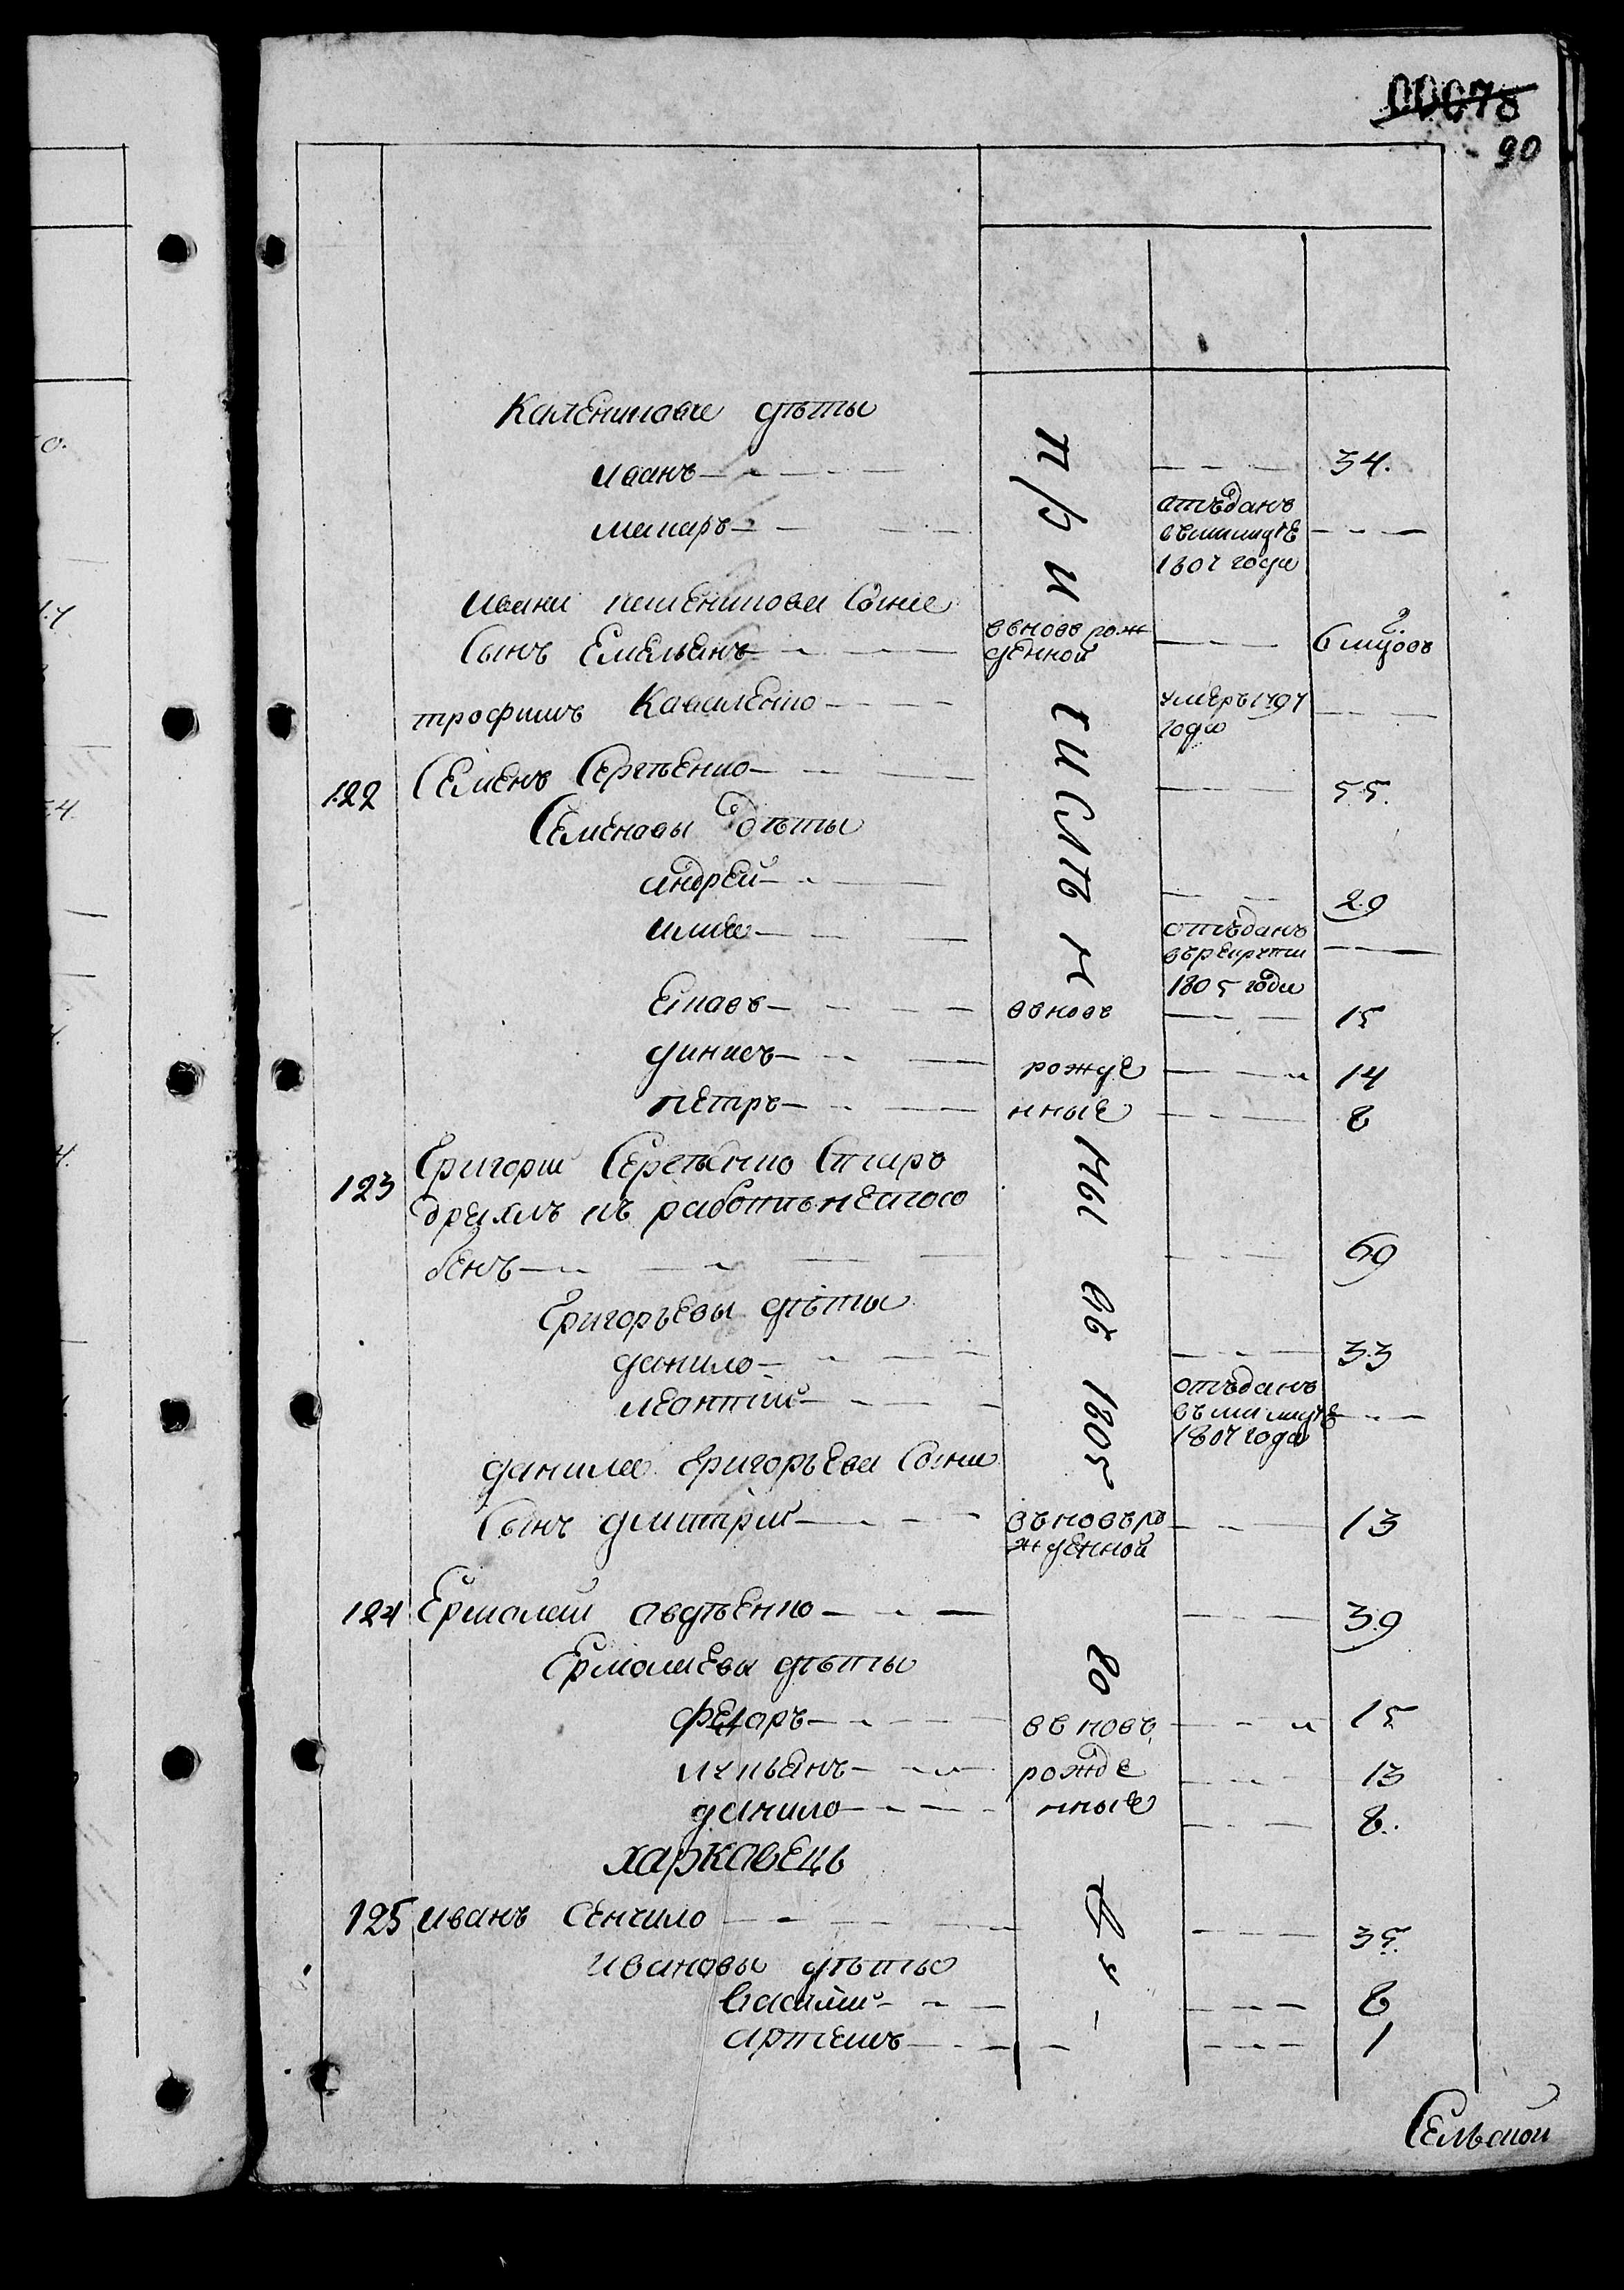 00078
90
Каленикове дѣти
иванъ — 34.
макаръ — отъданъ
въмилицѣе —
1807 года
ивана каленикова Сына
Сынъ Емельянъ — вновь рож
денной — 6 мцовъ
трофимъ Коваленко — умеръ 1797
года —
122 Семенъ Сергѣенко — 55.
Семеновы дѣти
андрей — 29
илия — отъданъ
върекруты —
1805 года
Еп — вновъ — 15
динисъ — рожде — 14
петръ — нные — 8
123 Григорий Сергѣенко Старъ
дряхлъ къ работѣ неспосо
бенъ — 69
Григорьевы дѣти
данило — 33
леонтий — отъданъ
въ милицѣе —
1807 года
данила Григорьева Сына
Сынъ дмитрий — въновъ ро
жденной — 13
124 Ермолай авдѣенко — 39
Ермолаевы дѣти
федоръ — въновъ — 15
лукьянъ — рожде — 13
данило — нные — 8.
харковецъ
125 иванъ Сенчило — 35.
ивановы дѣти
василий — 8
артемъ — 1
причислены въ 1805 го
Сельской